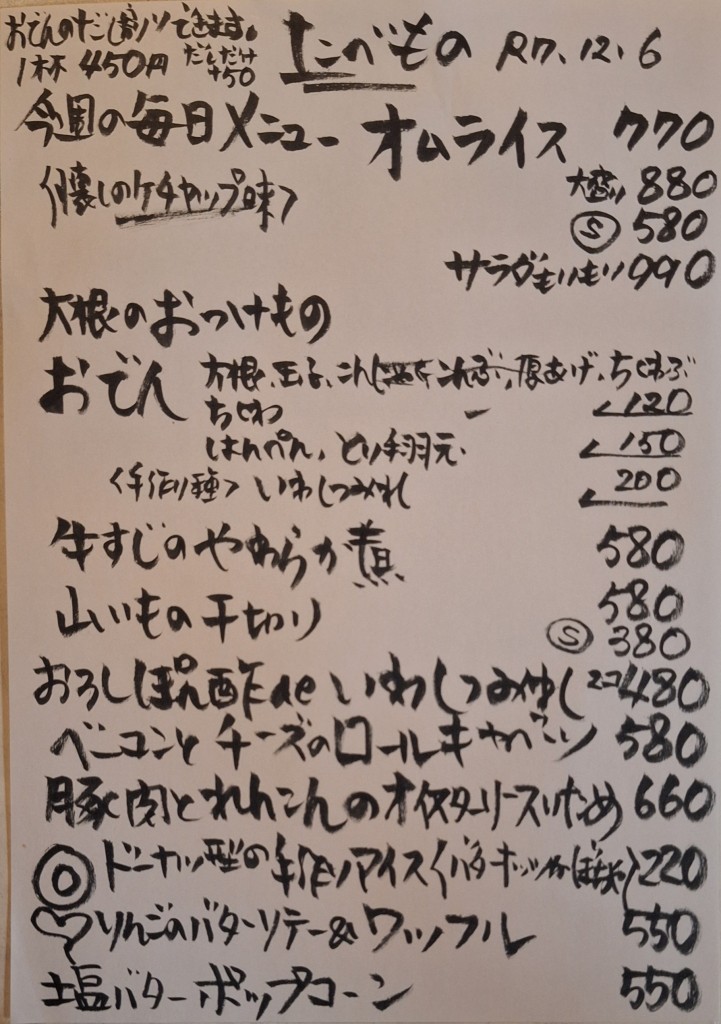 おでんのだし割りできます。
1杯 450円 だしだけ +50
たべもの R7.12.6
今週の毎日メニュー オムライス 770
〈懐しのケチャップ味〉 大盛り 880
Ⓢ 580
サラダもりもり 990
大根のおつけもの
おでん 大根、玉子、こんぶ、厚あげ、ちくわぶ
ちくわ 120
はんぺん、とり手羽元 150
〈手作り種〉いわしつみれ 200
牛すじのやわらか煮 580
山いもの千切り 580
Ⓢ 380
おろしぽん酢de いわしつみれ 2コ 480
ベーコンとチーズのロールキャベツ 580
豚肉とれんこんのオイスターソースいため 660
◎ ドーナッツ型の手作りアイス 220
♡りんごのバターソテー&ワッフル 550
塩バターポップコーン 550